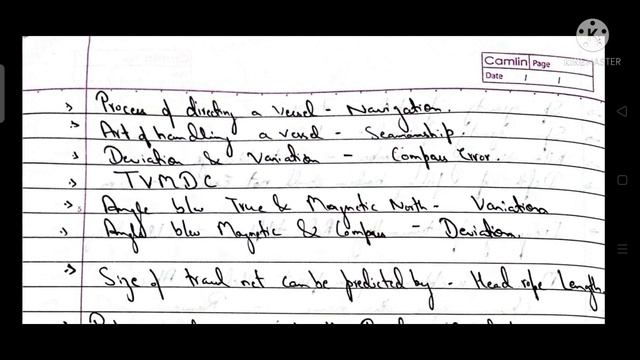 KINEMASTER
Camlin Page
Date / /
-> Process of directing a vessel - Navigation.
-> Art of handling a vessel - Seamanship.
-> Deviation & Variation - Compass Error.
-> TVMDC
-> Angle b/w True & Magnetic North - Variation
-> Angle b/w Magnetic & Compass - Deviation.
-> Size of trawl net can be predicted by - Head rope length.